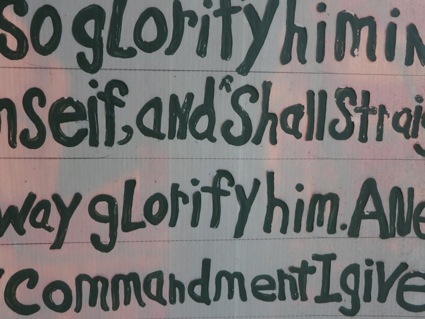 so glorify him in
nself, and ^ Shall Straig
way glorify him. A Ne
Commandment I give